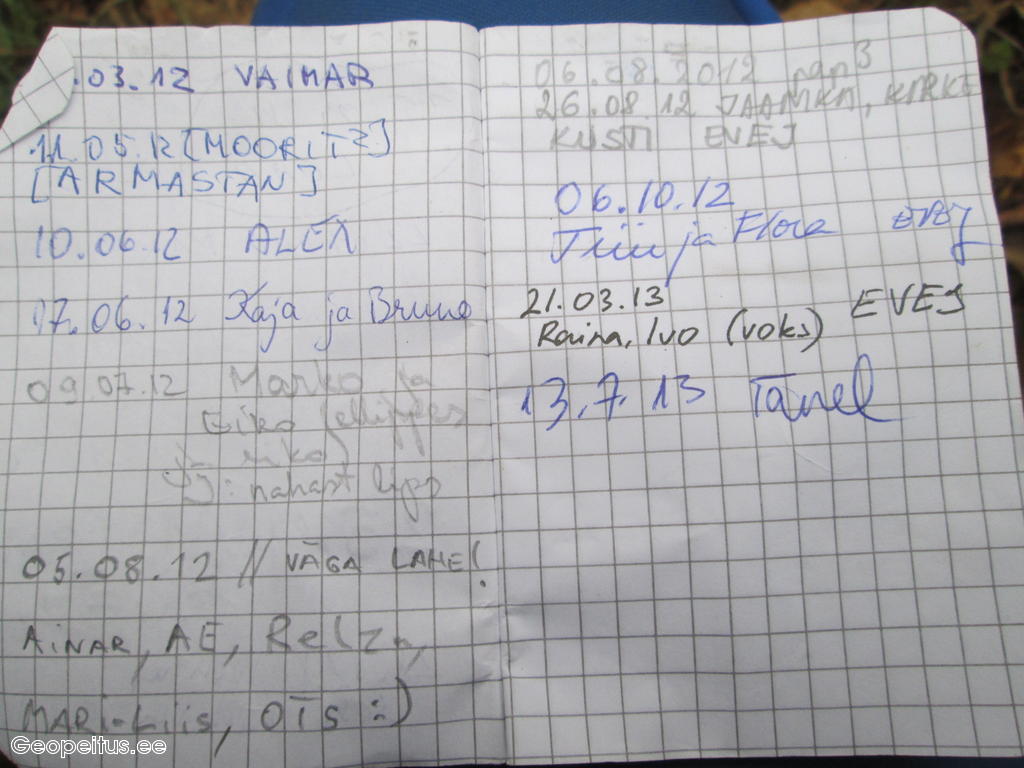 .03.12 VAIMAR
11.05.12 [MOORITZ]
[ARMASTAN]
10.06.12 ALEX
17.06.12 Kaja ja Bruno
09.07.12 Marko ja
Eiko
nahast
05.08.12 // VÄGA LAHE!
AINAR, AE, Relza,
MARI-Liis, OTS :)
06.08.2012
26.08.12 JAAMKA,
KUSTI EVEJ
06.10.12
Tiiu ja Flora EVEJ
21.03.13 EVEJ
Raina, Ivo (voks)
13.7.13 Tanel
Geopeitus.ee